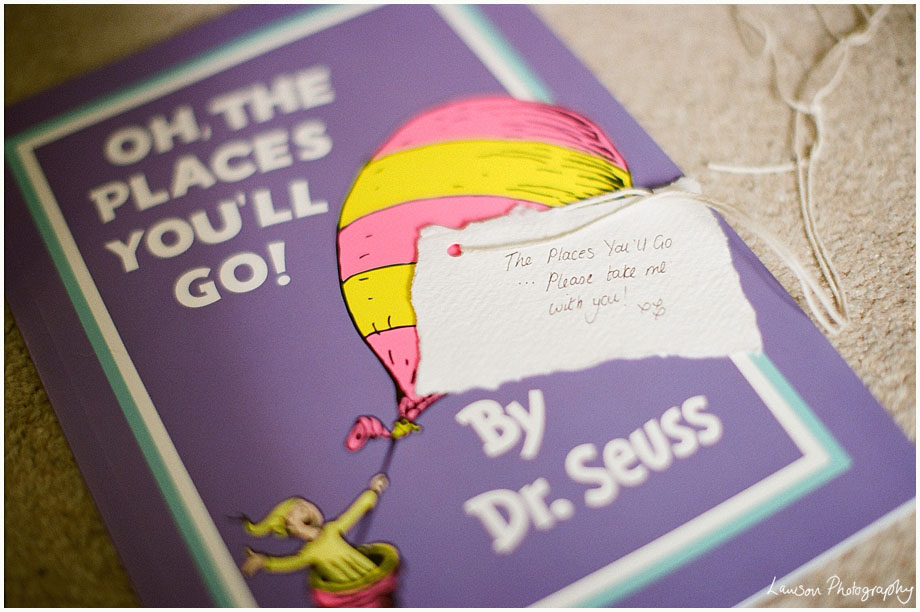 OH, THE
PLACES
YOU'LL
GO!
The Places You'll Go
... Please take me
with you!
By
Dr. Seuss
Lawson Photography